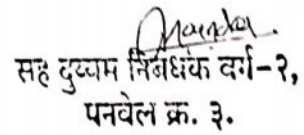 सह दुय्यम निबंधक वर्ग-२,
पनवेल क्र. ३.